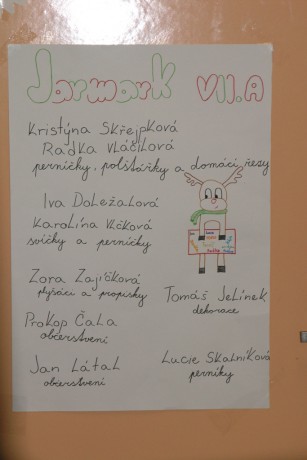 Jarmark VII.A
Kristýna Skřejpková
Radka Vláčilová
perníčky, polštářky a domácí řezy
Iva Doležalová
Karolína Vlčková
svíčky a perníčky
Zora Zajíčková
plyšáci a propisky
Tomáš Jelínek
dekorace
Prokop Čala
občerstvení
Jan Látal
občerstvení
Lucie Skalníková
perníky